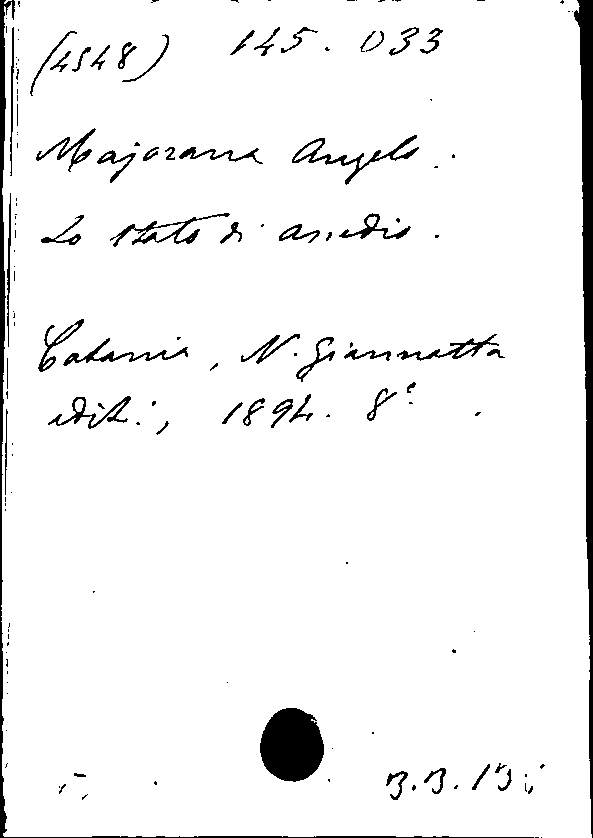 (4548) 145.033
Majorana Angelo.
Lo stato di assedio.
Catania, N. Giannotta
edit., 1894. 8°.
B.B.